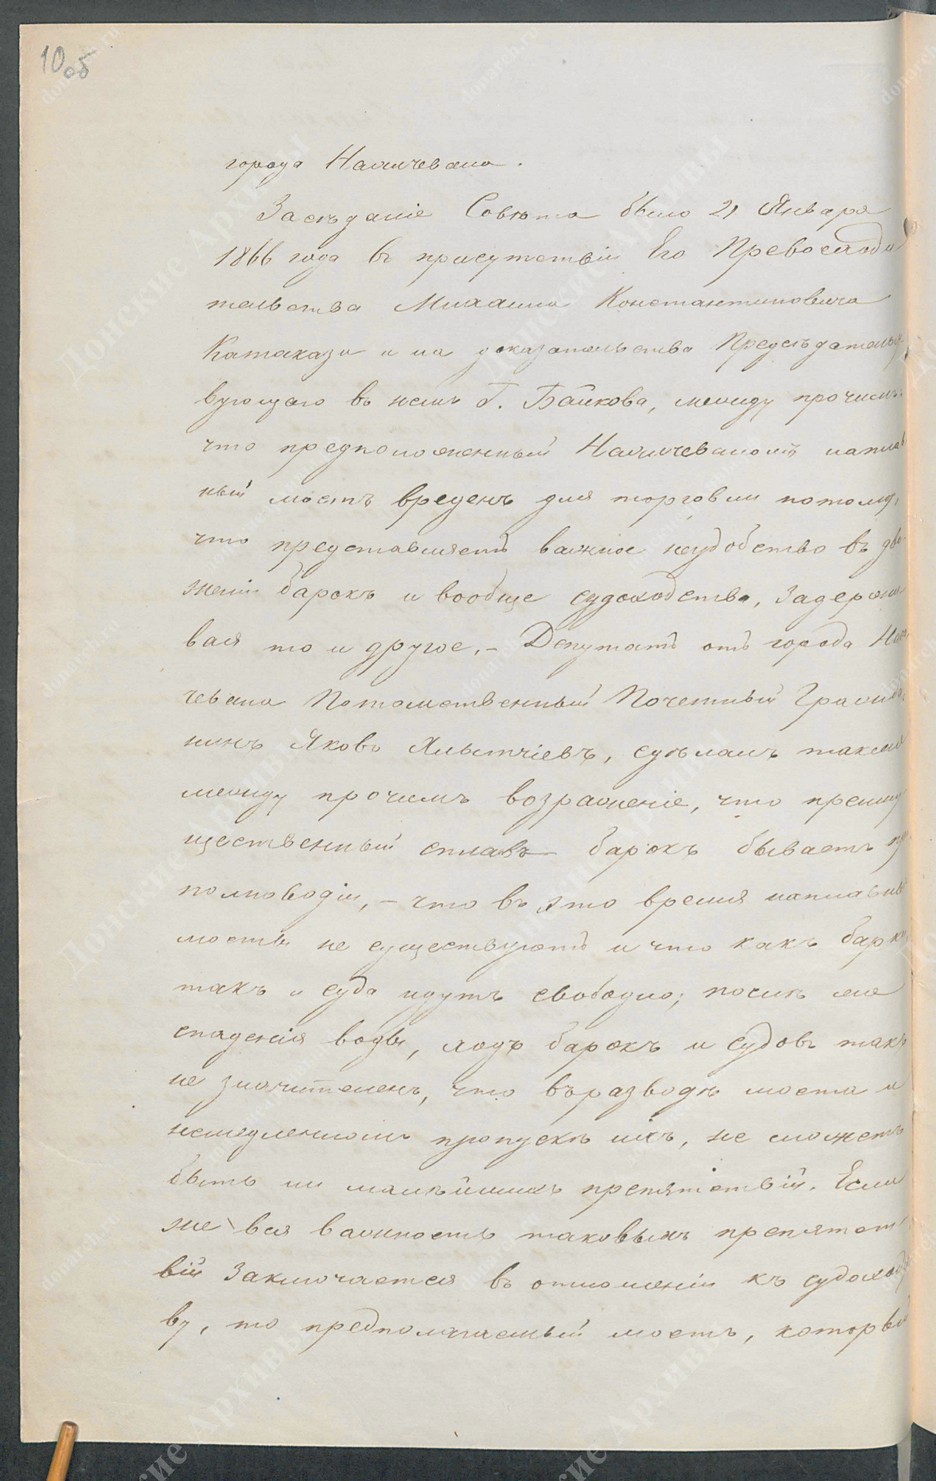 10об
города Нахичевана.
Заседаніе Совѣта было 21 Января
1866 года въ присутствіи Его Превосходи
тельства Михаила Константиновича
Катакази и на доказательства Предсѣдательст
вующаго въ немъ Г. Байкова, между прочимъ,
что предположенный Нахичеванскій наплав
ный мостъ вреденъ для торговли потому,
что представляетъ важное неудобство въ дви
женіи барокъ и вообще судоходства, задержи
вая то и другое, – Депутатъ отъ города Нахи
чевана Потомственный Почетный Гражда
нинъ Яковъ Ялытчіевъ, сдѣлалъ также
между прочимъ возраженіе, что преиму
щественный сплавъ барокъ бываетъ въ
полноводіи, – что въ это время наплавные
мосты не существуютъ и что какъ барки
такъ и суда идутъ свободно; послѣ же
спаденія воды, ходъ барокъ и судовъ такъ
не значителенъ, что въ разводѣ моста и
немедленномъ пропускѣ ихъ, не можетъ
быть ни малѣйшихъ препятствій. Если
же вся важность таковыхъ препятст
вій заключается въ отношеніи къ судоходст
ву, то предполагаемый мостъ, который